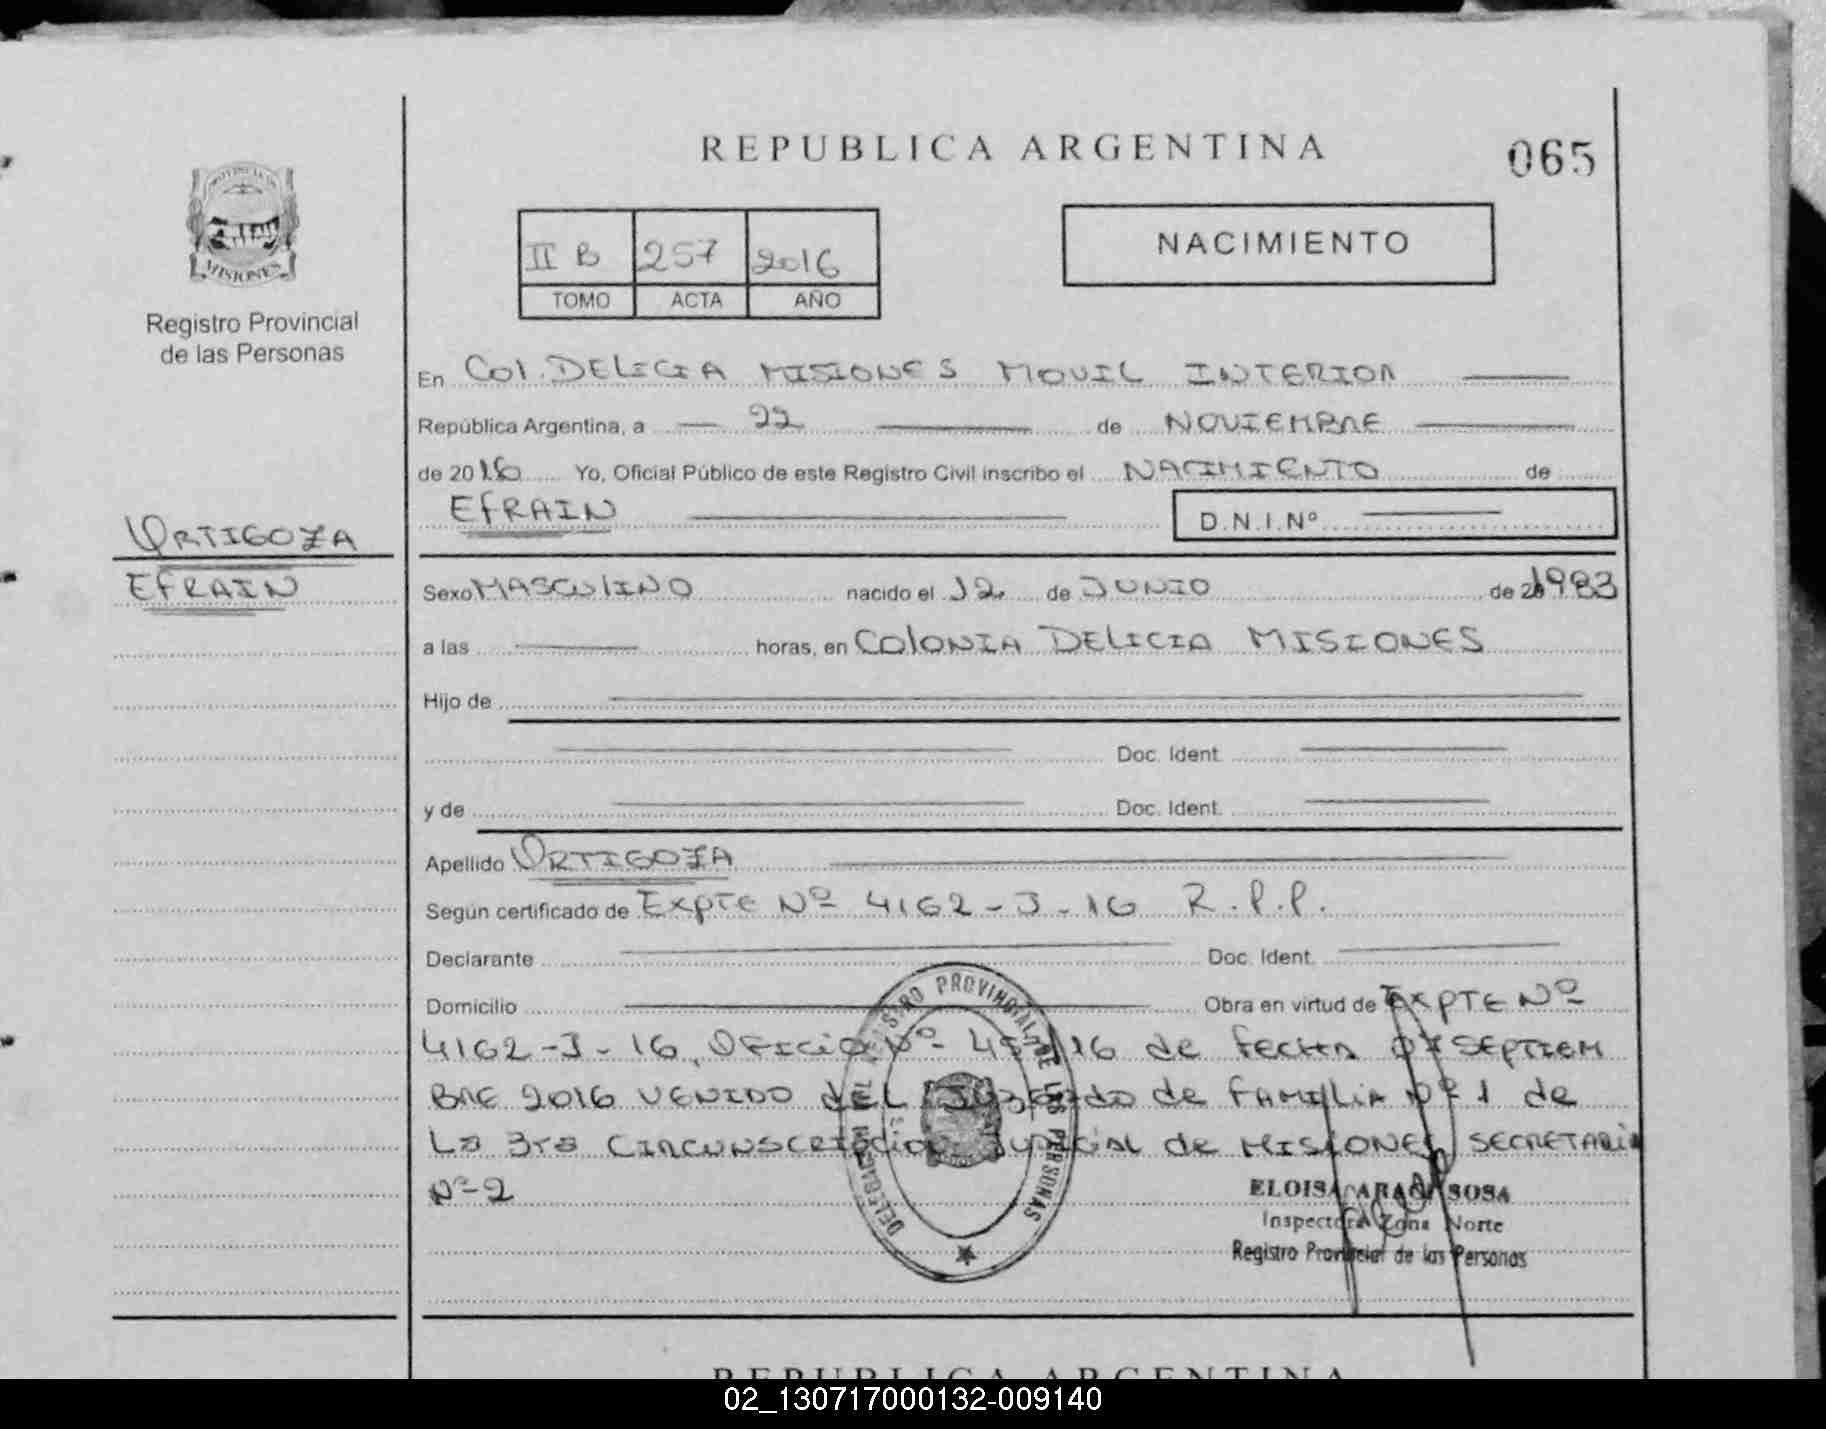 REPUBLICA ARGENTINA
065
PROVINCIA DE
MISIONES
Registro Provincial
de las Personas
II B 257 2016
TOMO ACTA AÑO
NACIMIENTO
En Col. DELICIA MISIONES MOVIL INTERIOR
República Argentina, a 22 de NOVIEMBRE
de 2016 Yo, Oficial Público de este Registro Civil inscribo el NACIMIENTO de
EFRAIN
D.N.I.Nº
ORTIGOZA
EFRAIN
Sexo MASCULINO nacido el 12 de JUNIO de 20 1983
a las horas, en COLONIA DELICIA MISIONES
Hijo de
Doc. Ident.
y de Doc. Ident.
Apellido ORTIGOZA
Según certificado de Expte Nº 4162-J-16 R.P.P.
Declarante Doc. Ident.
Domicilio Obra en virtud de EXPTE Nº
4162-J-16, OFICIO Nº 16 de FECHA SEPTIEM
BRE 2016 VENIDO DEL JUZGADO de FAMILIA Nº 1 de
La 3ra CIRCUNSCRIPCION JUDICIAL de MISIONES SECRETARIA
Nº 2
REGISTRO PROVINCIAL DE LAS PERSONAS
ELOISA SOSA
Inspectora Zona Norte
Registro Provincial de las Personas
REPUBLICA ARGENTINA
02_130717000132-009140